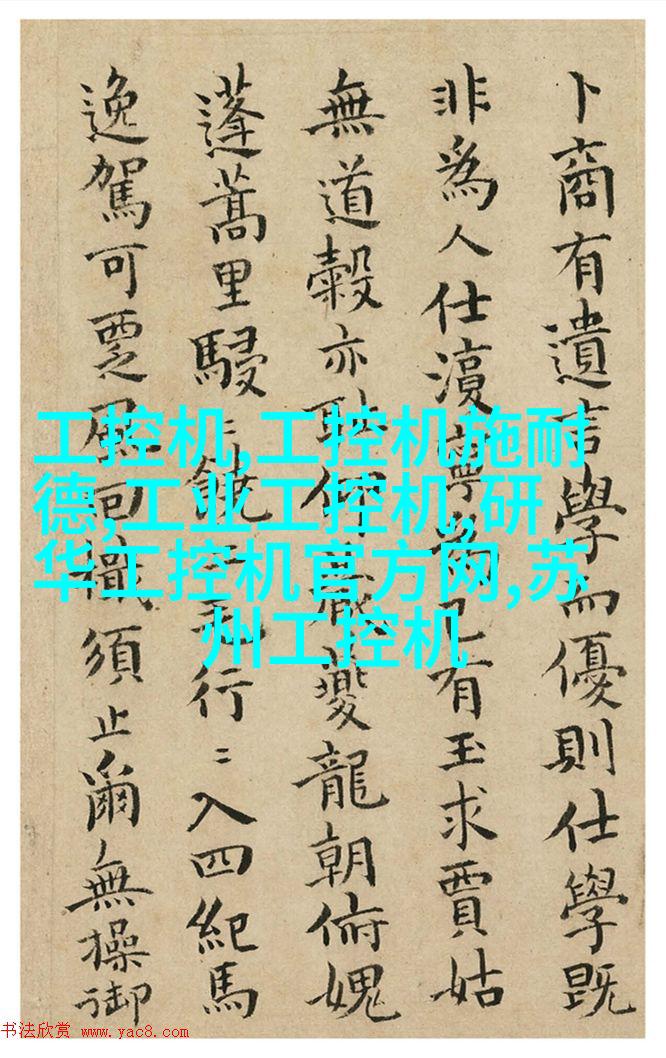 卜商有遺言學而優則仕學既
非爲人仕湏寧為己有玉求賈姑
無道穀亦耻仰夔龍朝俯媿
蓬蒿里駸〻行〻入四紀馬
逸駕可覂須止爾無操御
工控机,工控机施耐
德,工业工控机,研
华工控机官方网,苏
州工控机
书法欣赏 www.yac8.com